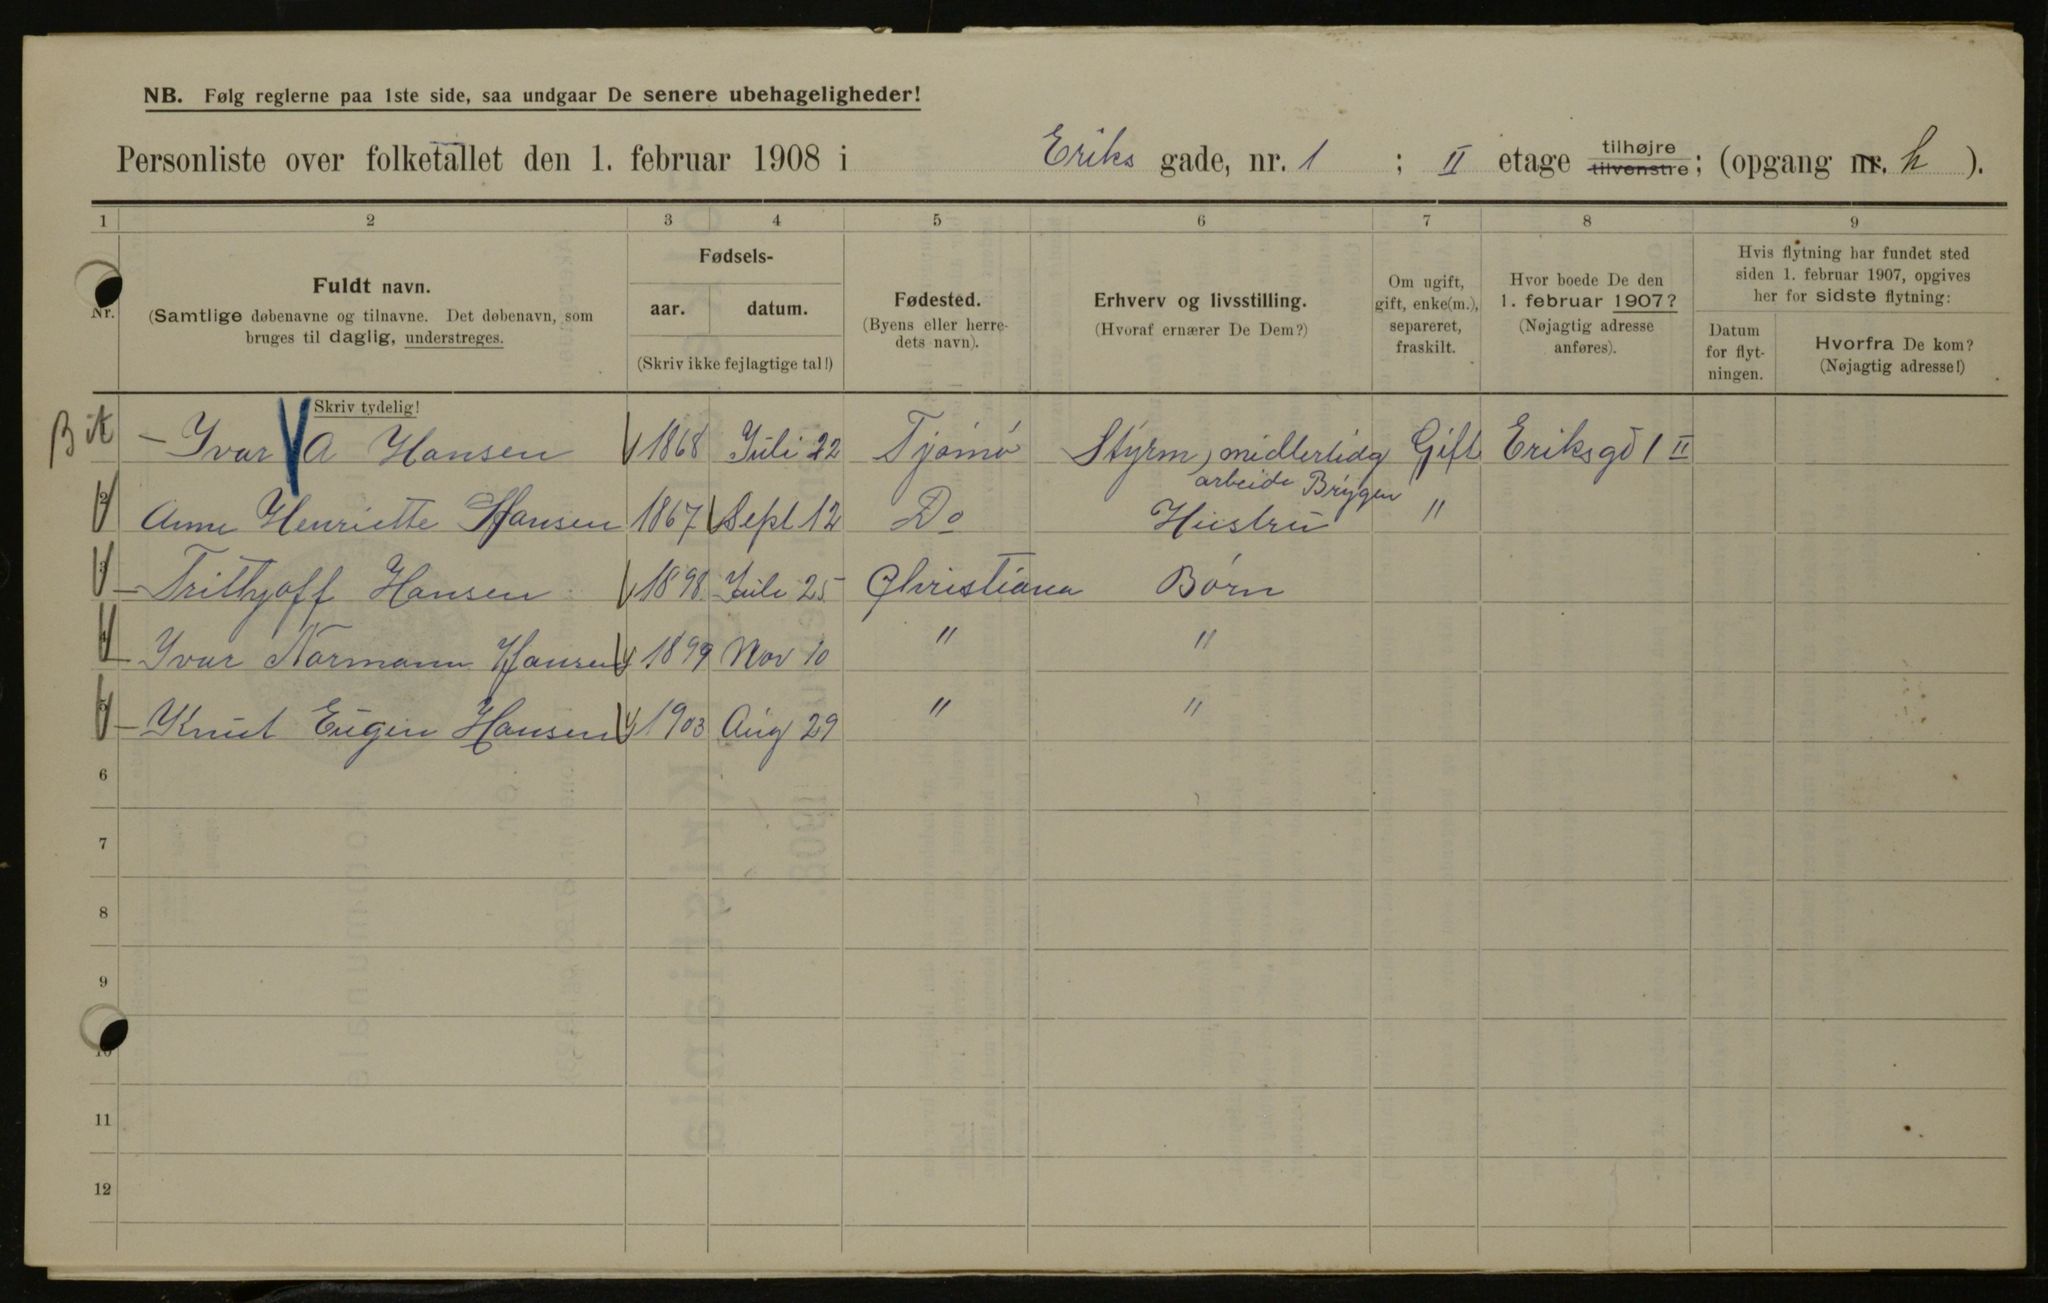 NB. Følg reglerne paa 1ste side, saa undgaar De senere ubehageligheder!
Personliste over folketallet den 1. februar 1908 i Eriks gade, nr. 1 ; II etage tilhøjre tilvenstre; (opgang nr. h ).
1 2 3 4 5 6 7 8 9
Nr.
Fuldt navn.
(Samtlige døbenavne og tilnavne. Det døbenavn, som
bruges til daglig, understreges.
Fødsels-
aar. datum.
(Skriv ikke fejlagtige tal!)
Fødested.
(Byens eller herre-
dets navn).
Erhverv og livsstilling.
(Hvoraf ernærer De Dem?)
Om ugift,
gift, enke(m.),
separeret,
fraskilt.
Hvor boede De den
1. februar 1907?
(Nøjagtig adresse
anføres).
Hvis flytning har fundet sted
siden 1. februar 1907, opgives
her for sidste flytning:
Datum
for flyt-
ningen.
Hvorfra De kom?
(Nøjagtig adresse!)
Skriv tydelig!
Yvar A Hansen 1868 Juli 22 Tjömö Styrm, midlertidg Gift Eriksgd 1 II
arbeide Brygen
2 Anne Henriette Hansen 1867 Sept 12 Do Hustru "
3 Frithjoff Hansen 1898 Juli 25 Christiana Børn
4 Yvar Normann Hansen 1899 Nov 10 " "
5 Knut Eugen Hansen 1903 Aug 29 " "
6
7
8
9
10
11
12